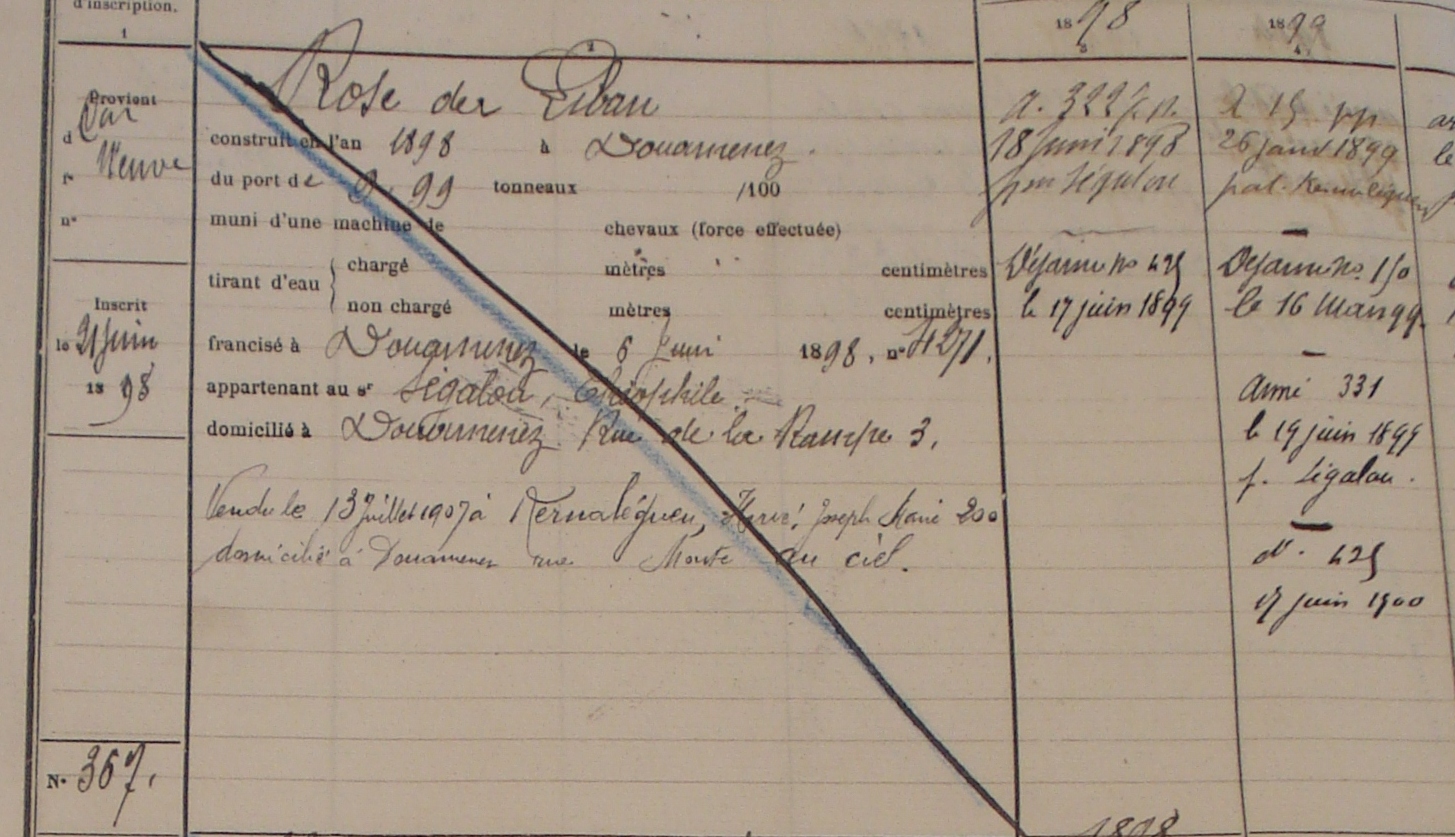 d'inscription.
1
Provient
Car
d
Neuve
fo
no
Inscrit
le 21 Juin
1898
No 367.
2
Rose der Liban
construit en l'an 1898 à Douarnenez.
du port de 9.99 tonneaux /100
muni d'une machine de chevaux (force effectuée)
tirant d'eau { chargé mètres centimètres
non chargé mètres centimètres
francisé à Douarnenez le 6 Juin 1898, no 4271.
appartenant au sr Ségalou, Théophile
domicilié à Douarnenez Rue de la Rampe 3.
Vendu le 13 Juillet 1907 à Kernaléguen, Hervé, Joseph Marie 200
domicilié à Douarnenez rue Monte au ciel.
1898
3
a. 322
18 Juin 1898
par Ségalou
Désarmé no 425
le 17 juin 1899
1898
1899
4
a 15
26 janv 1899
par Kernaléguen
Désarmé no 150
le 16 Mars 99.
Armé 331
le 19 juin 1899
p. Ségalou.
d. 425
17 juin 1900
ar
le